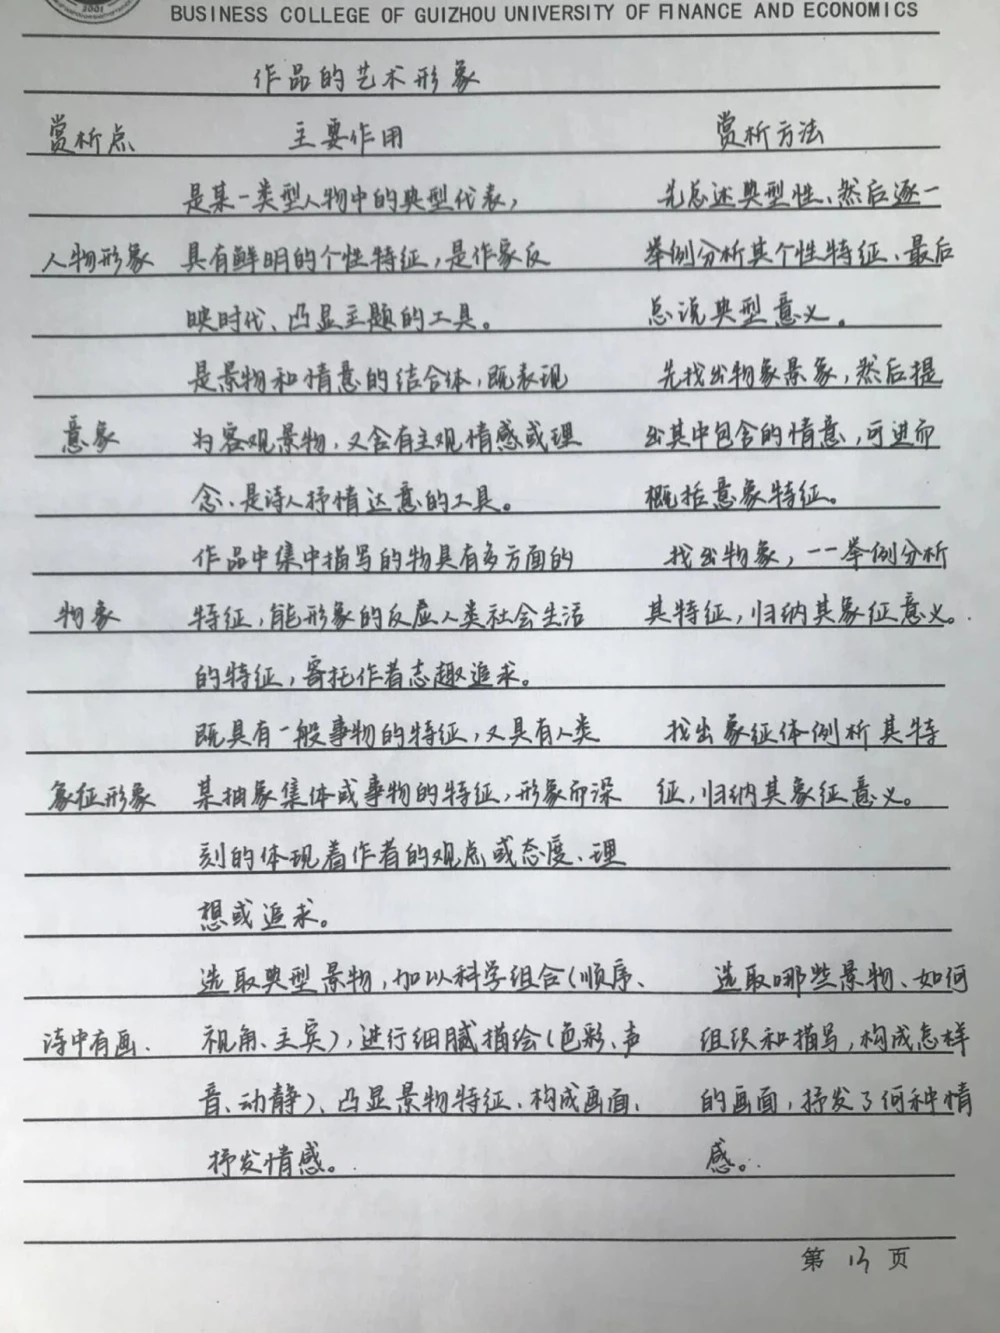 2001
BUSINESS COLLEGE OF GUIZHOU UNIVERSITY OF FINANCE AND ECONOMICS
作品的艺术形象
赏析点 主要作用 赏析方法
是某一类型人物中的典型代表, 先总述典型性、然后逐一
人物形象 具有鲜明的个性特征,是作家反 举例分析其个性特征、最后
映时代、凸显主题的工具。 总说典型意义。
是景物和情意的结合体,既表现 先找出物象景象,然后提
意象 为客观景物,又含有主观情感或理 出其中包含的情意,可进而
念、是诗人抒情达意的工具。 概括意象特征。
作品中集中描写的物具有多方面的 找出物象,一一举例分析
物象 特征,能形象的反应人类社会生活 其特征,归纳其象征意义。
的特征,寄托作者志趣追求。
既具有一般事物的特征,又具有人类 找出象征体例析其特
象征形象 某抽象集体或事物的特征,形象而深 征,归纳其象征意义。
刻的体现着作者的观点或态度、理
想或追求。
选取典型景物,加以科学组合(顺序、 选取哪些景物、如何
诗中有画、 视角、主宾),进行细腻描绘(色彩、声 组织和描写,构成怎样
音、动静)、凸显景物特征、构成画面、 的画面,抒发了何种情
抒发情感。 感。
第 13 页